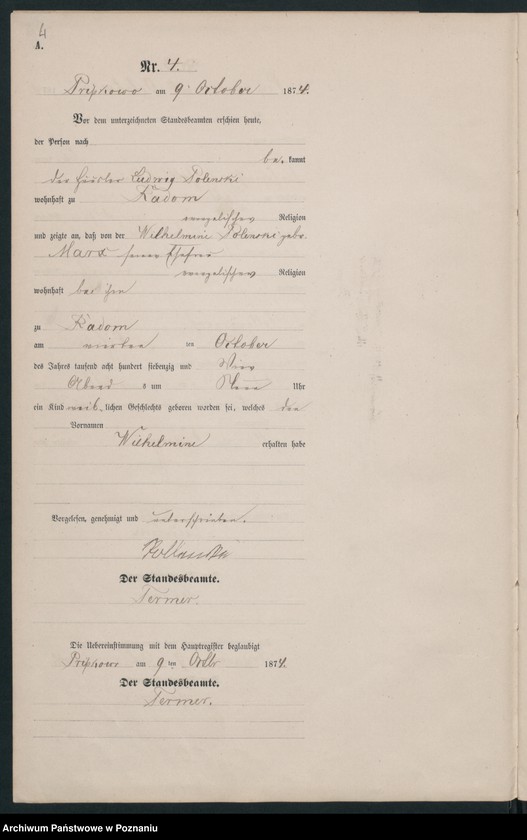 4
A.
Nr. 4.
am 9. October 1874.
Vor dem unterzeichneten Standesbeamten erschien heute,
der Person nach
be. kannt
der Ludwig Polenski
wohnhaft zu Radom
evangelischer Religion
und zeigte an, daß von der Wilhelmine Polenski geb.
Marx seiner Ehefrau
evangelischer Religion
wohnhaft bei ihm
zu Radom
am vierten ten October
des Jahres tausend acht hundert siebenzig und Vier
Abend s um Uhr
ein Kind weib. lichen Geschlechts geboren worden sei, welches den
Vornamen
Wilhelmine erhalten habe
Vorgelesen, genehmigt und unterschrieben.
Der Standesbeamte.
Termer.
Die Uebereinstimmung mit dem Hauptregister beglaubigt
am 9 ten Octbr 1874.
Der Standesbeamte.
Termer.
Archiwum Państwowe w Poznaniu